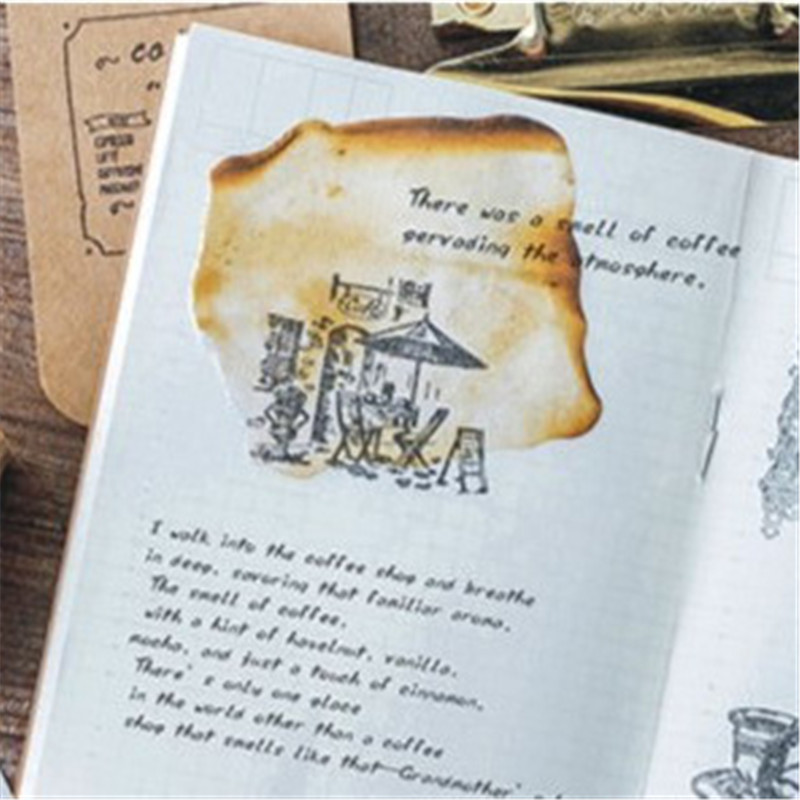 CO
There was a smell of coffee
pervading the atmosphere.
I walk into the coffee shop and breathe
in deep, savoring that familiar aroma.
The smell of coffee,
with a hint of hazelnut, vanilla,
mocha, and just a touch of cinnamon.
There's only one place
in the world other than a coffee
shop that smells like that—Grandmother'